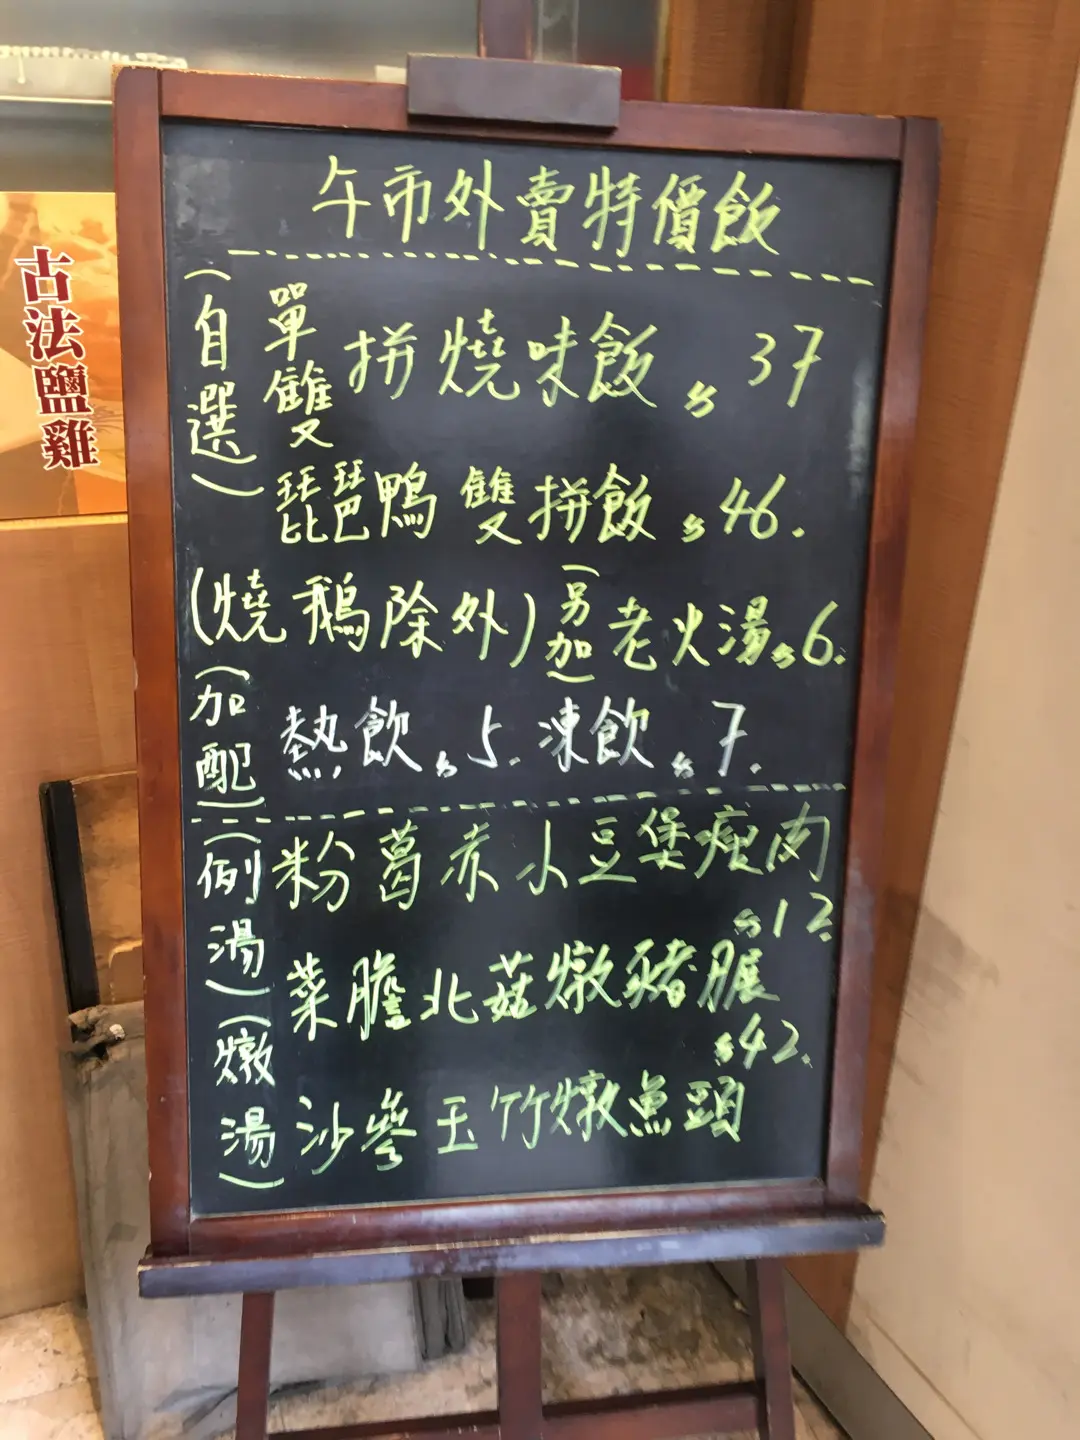 古法鹽雞
午市外賣特價飯
(自選) 單雙拼燒味飯 $37
琵琶鴨雙拼飯 $46.
(燒鵝除外) (另加) 老火湯 $6.
(加配) 熱飲 $5. 凍飲 $7.
(例湯) 粉葛赤小豆煲瘦肉
$12
(燉湯) 菜膽北菇燉豬𦟌
$42.
沙參玉竹燉魚頭